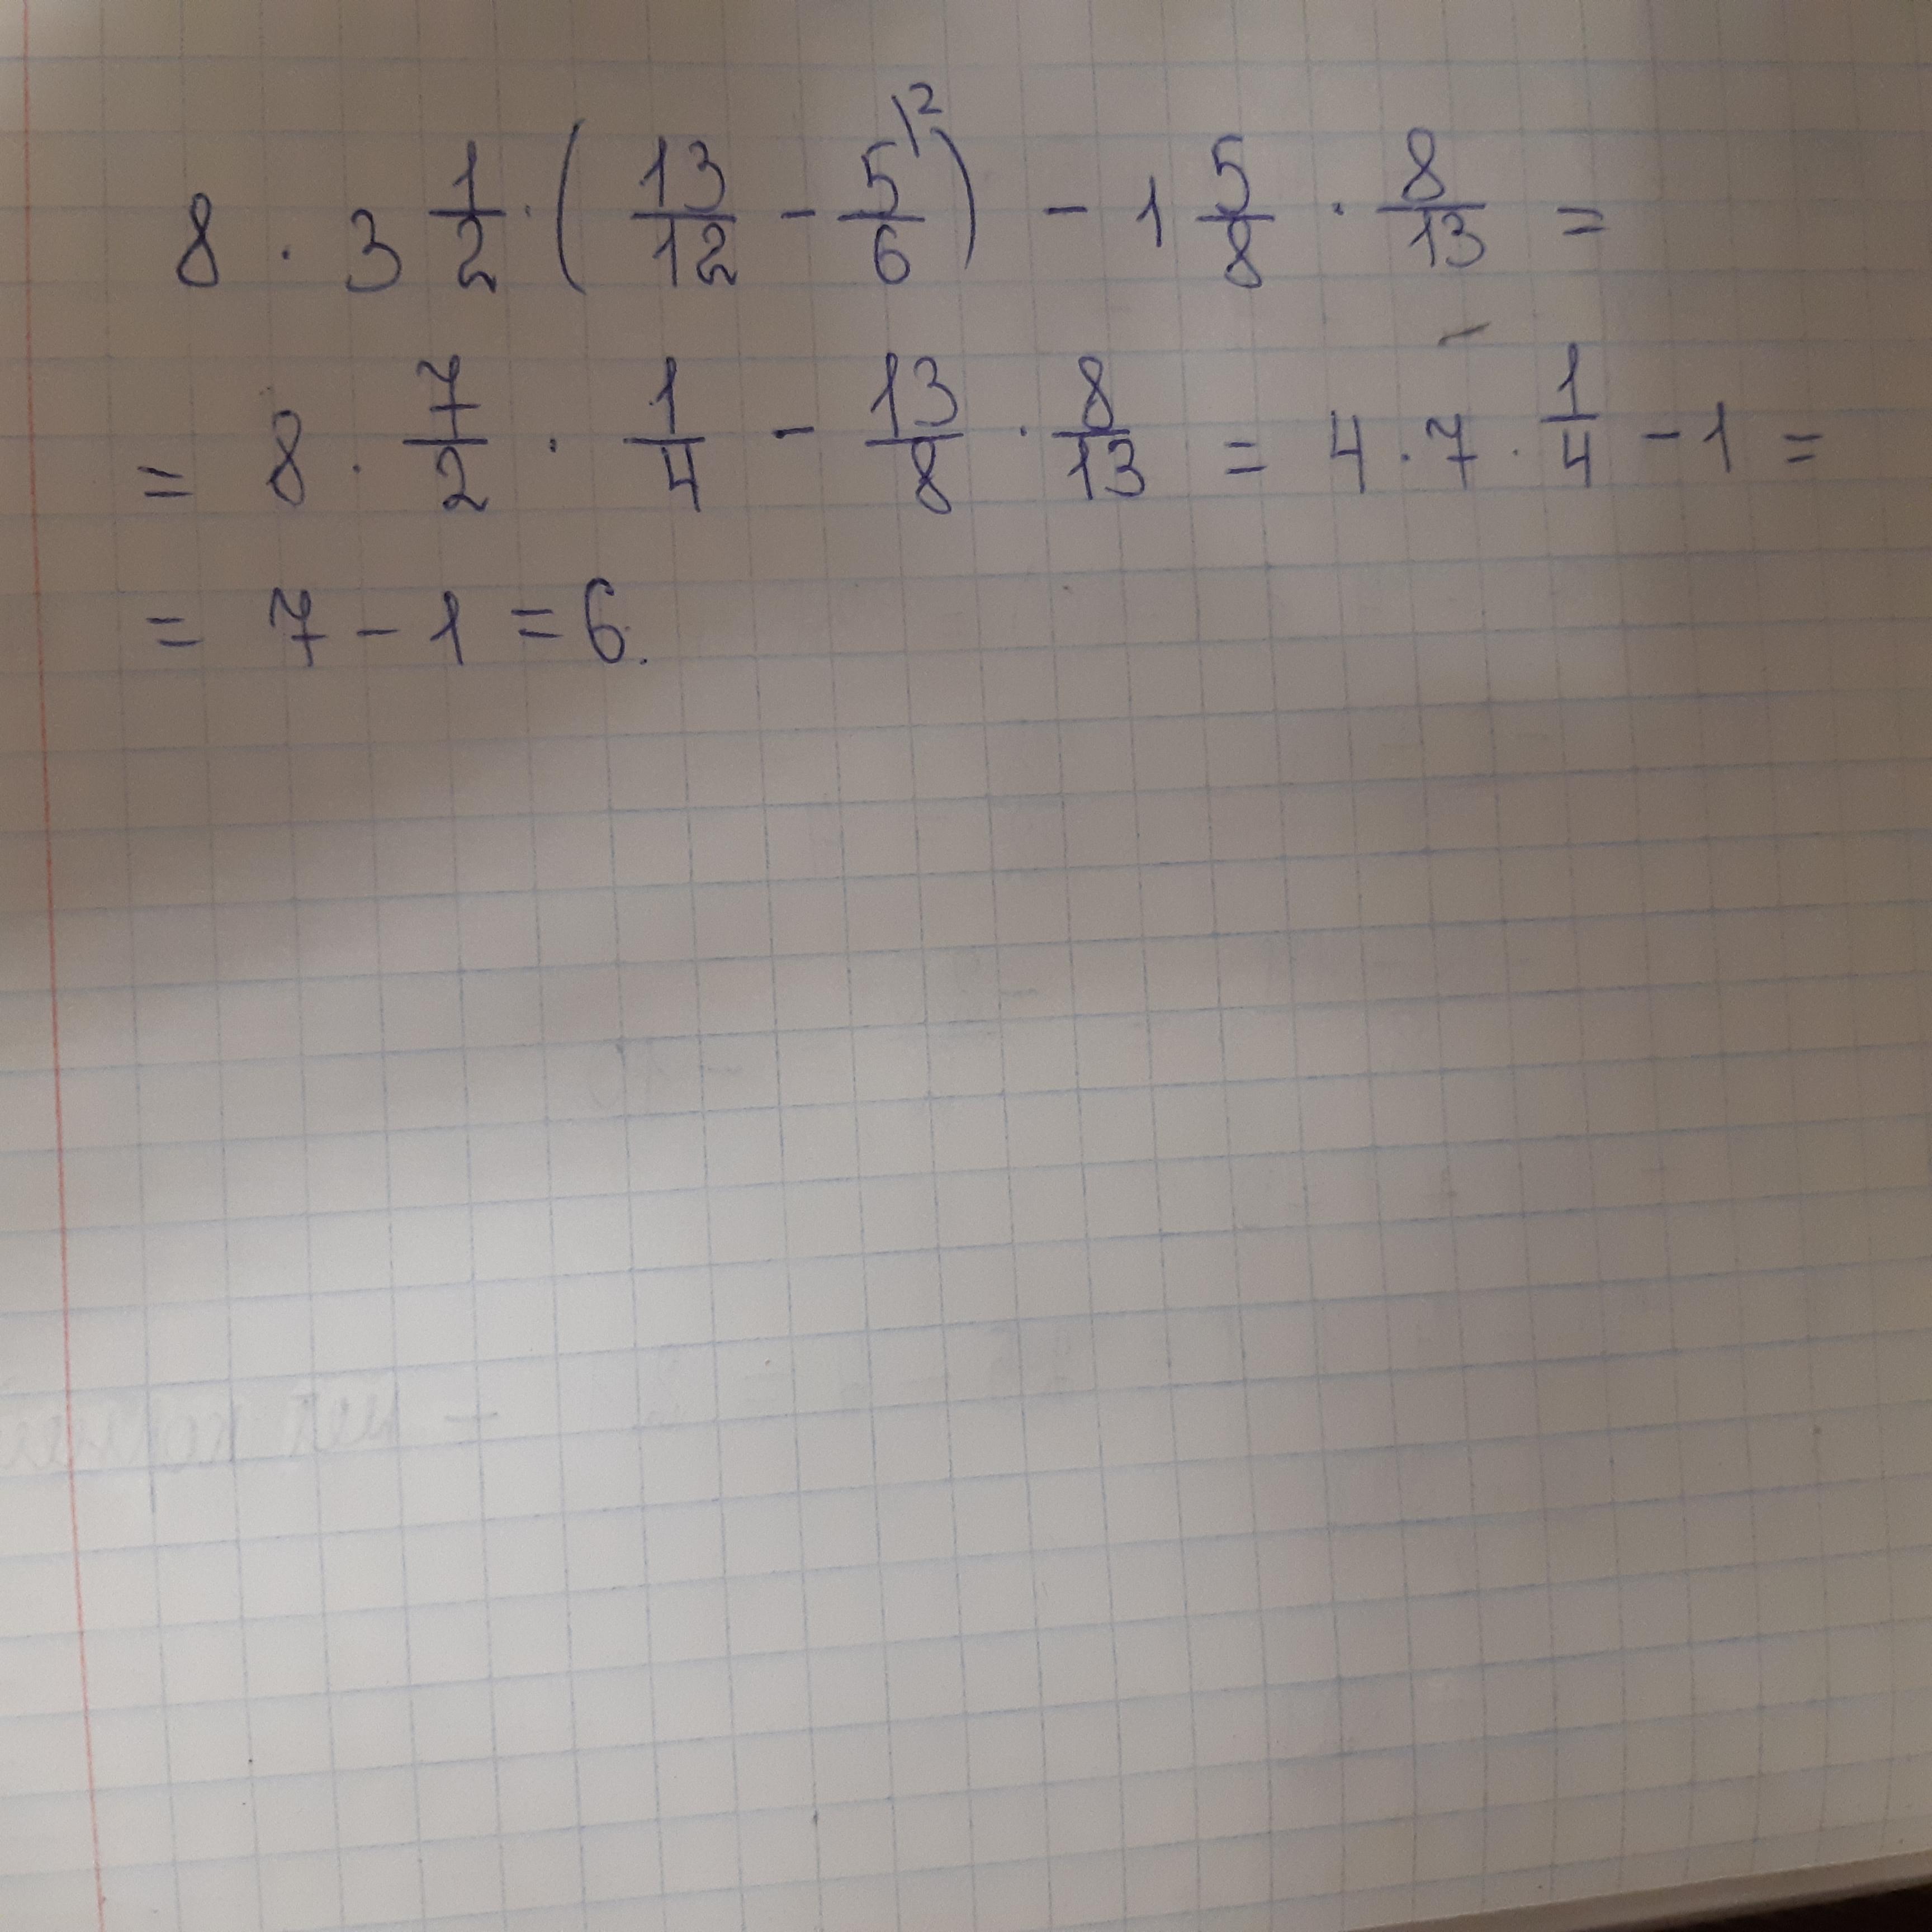 8 · 3 1/2 · ( 13/12 - 5/6 \2 ) - 1 5/8 · 8/13 =
= 8 · 7/2 · 1/4 - 13/8 · 8/13 = 4 · 7 · 1/4 - 1 =
= 7 - 1 = 6.